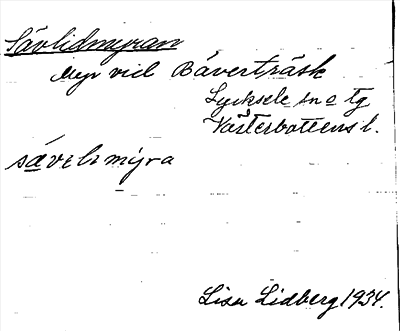 Sävlidmyran
Myr vid Bäverträsk
Lycksele sn o tg
Västerbottens l.
sävelsmýra
Lisa Lidberg 1934.